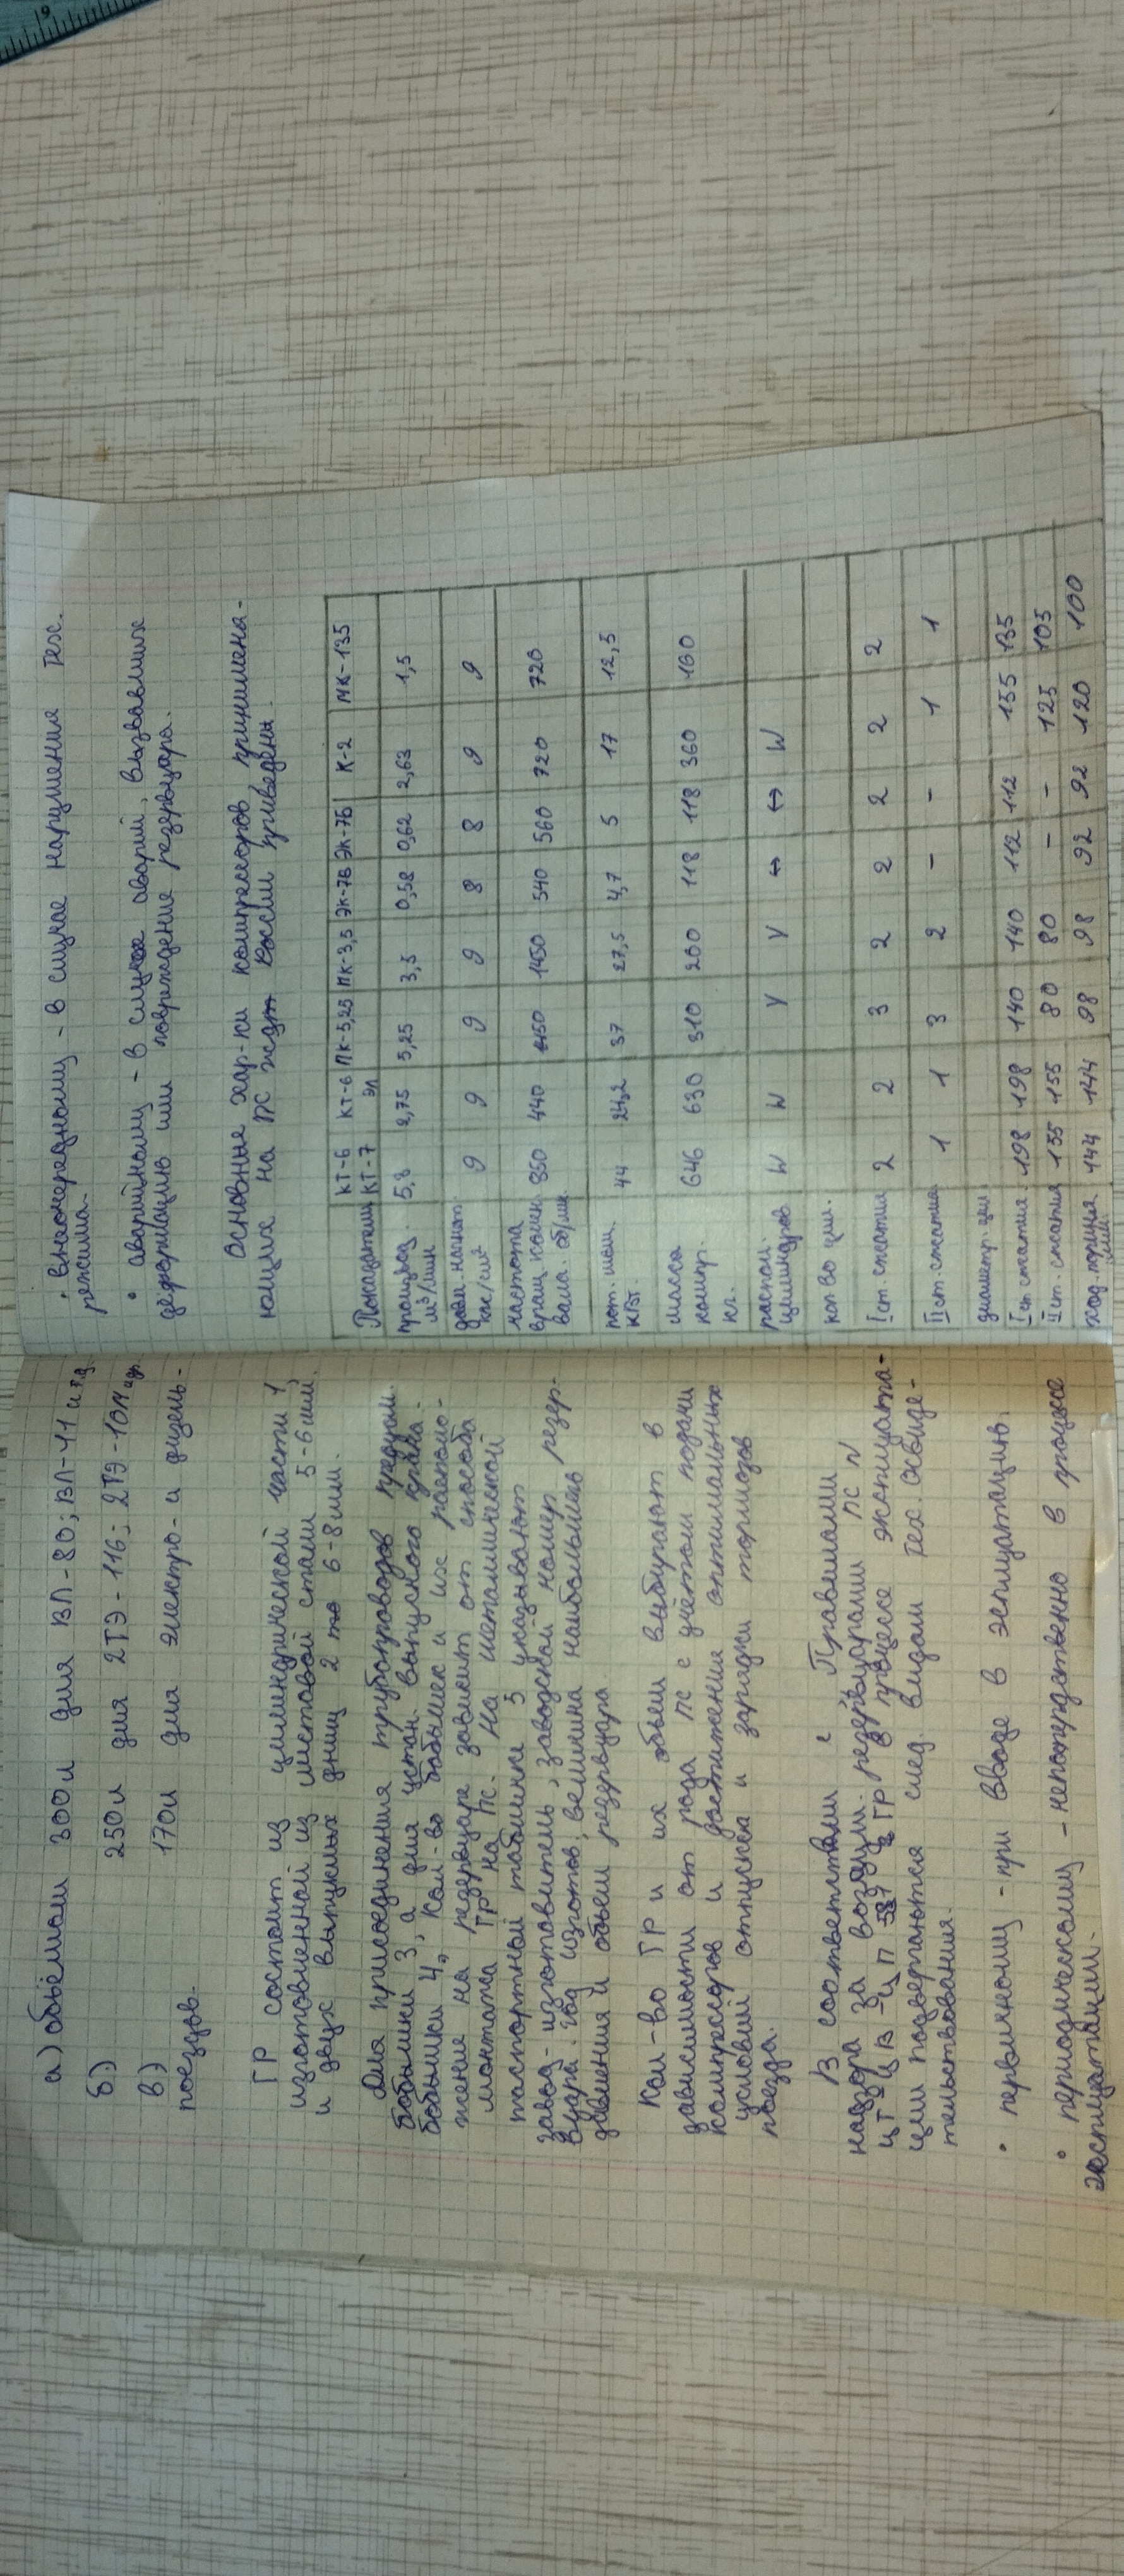 а) объёмом 300л для ВЛ-80; ВЛ-11 и т.д.
б) 250л для 2ТЭ-116; 2ТЭ-10М и др.
в) 170л для электро- и дизель-
поездов.
ГР состоит из цилиндрической части 1,
изготовленной из листовой стали 5-6мм.
и двух выпуклых днищ 2 то 6-8мм.
Для присоединения трубопроводов предусм.
бобышки 3, а для устан. выпускного крана-
бобышки 4, Кол-во бобышек и их располо-
жение на резервуаре зависит от способа
монтажа ГР на ПС. На металлической
паспортной табличке 5 указывают
завод-изготовитель, заводской номер резер-
вуара, год изготов, величина наибольшего
давления и объем резервуара
Кол-во ГР и их объем выбирают в
зависимости от рода ПС с учётом подачи
компрессоров и достижения оптимальных
условий отпуска и зарядки тормозов
поезда.
В соответствии с Правилами
надзора за воздушн. резервуарами ПС №
ЦТ-ЦВ-ЦП 587 ГР в процессе эксплуата-
ции подвергаются след видам тех. освиде-
тельствования.
• первичному - при вводе в эсплуатацию.
• периодическому - непосредственно в процессе
эксплуатации.
• внеочередному - в случае нарушения тех.
режима.
• аварийному - в случае аварий, вызвавших
деформацию или повреждение резервуара.
Основные хар-ки компрессоров, применяе-
мых на ПС ждт России приведены.
Показатели КТ-6 КТ-7 КТ-6 Эл ПК-5,25 ПК-3,5 ЭК-7В ЭК-7Б К-2 МК-135
произвд. м³/мин 5,3 2,75 5,25 3,5 0,58 0,62 2,63 1,5
давл. нагнет. кгс/см² 9 9 9 9 8 8 9 9
частота вращ. колен. вала. об/мин. 850 440 1450 1450 540 560 720 720
пот. мощ. кВт. 44 24,2 37 27,5 4,7 5 17 12,5
масса компр. кг. 646 630 310 200 118 118 360 160
распол. цилиндров W W V V ↔ ↔ W
кол во цил.
I ст. сжатия 2 2 3 2 2 2 2 2
II ст. сжатия 1 1 3 2 - - 1 1
диаметр. цил
I ст сжатия 198 198 140 140 112 112 155 135
II ст. сжатия 155 155 80 80 - - 125 105
ход. поршня мм. 144 144 98 98 92 92 120 100